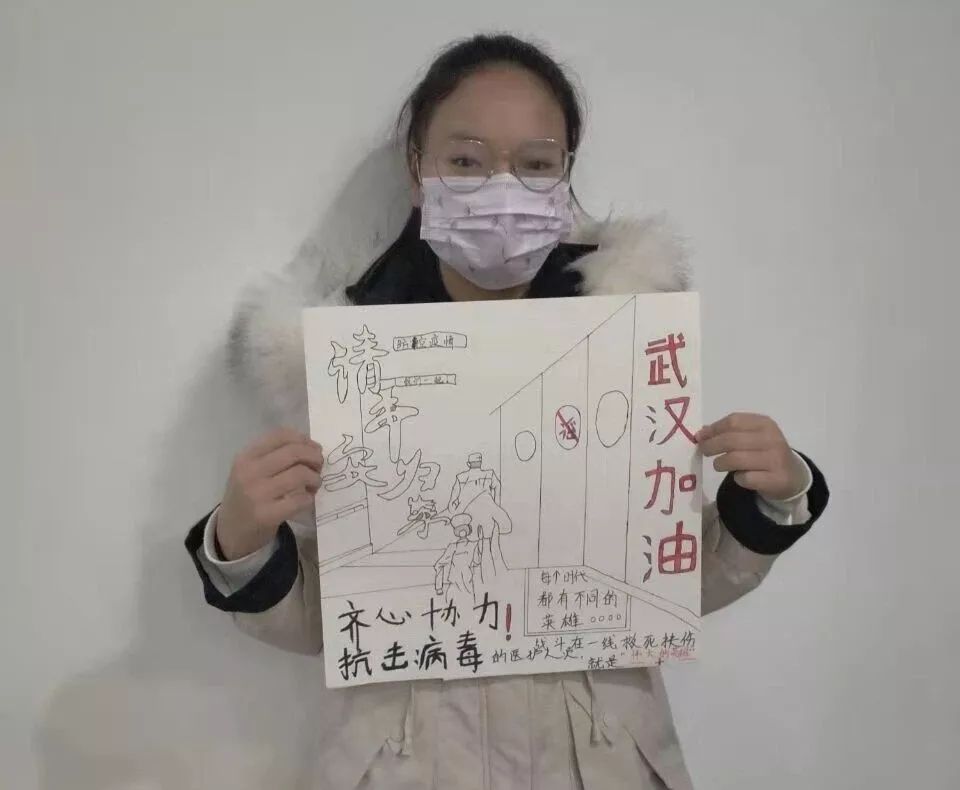 请平安归来
防控疫情
我们一起!
武汉加油
每个时代
都有不同的
英雄。。。。
齐心协力!
抗击病毒
战斗在一线救死扶伤
的医护人员,就是"